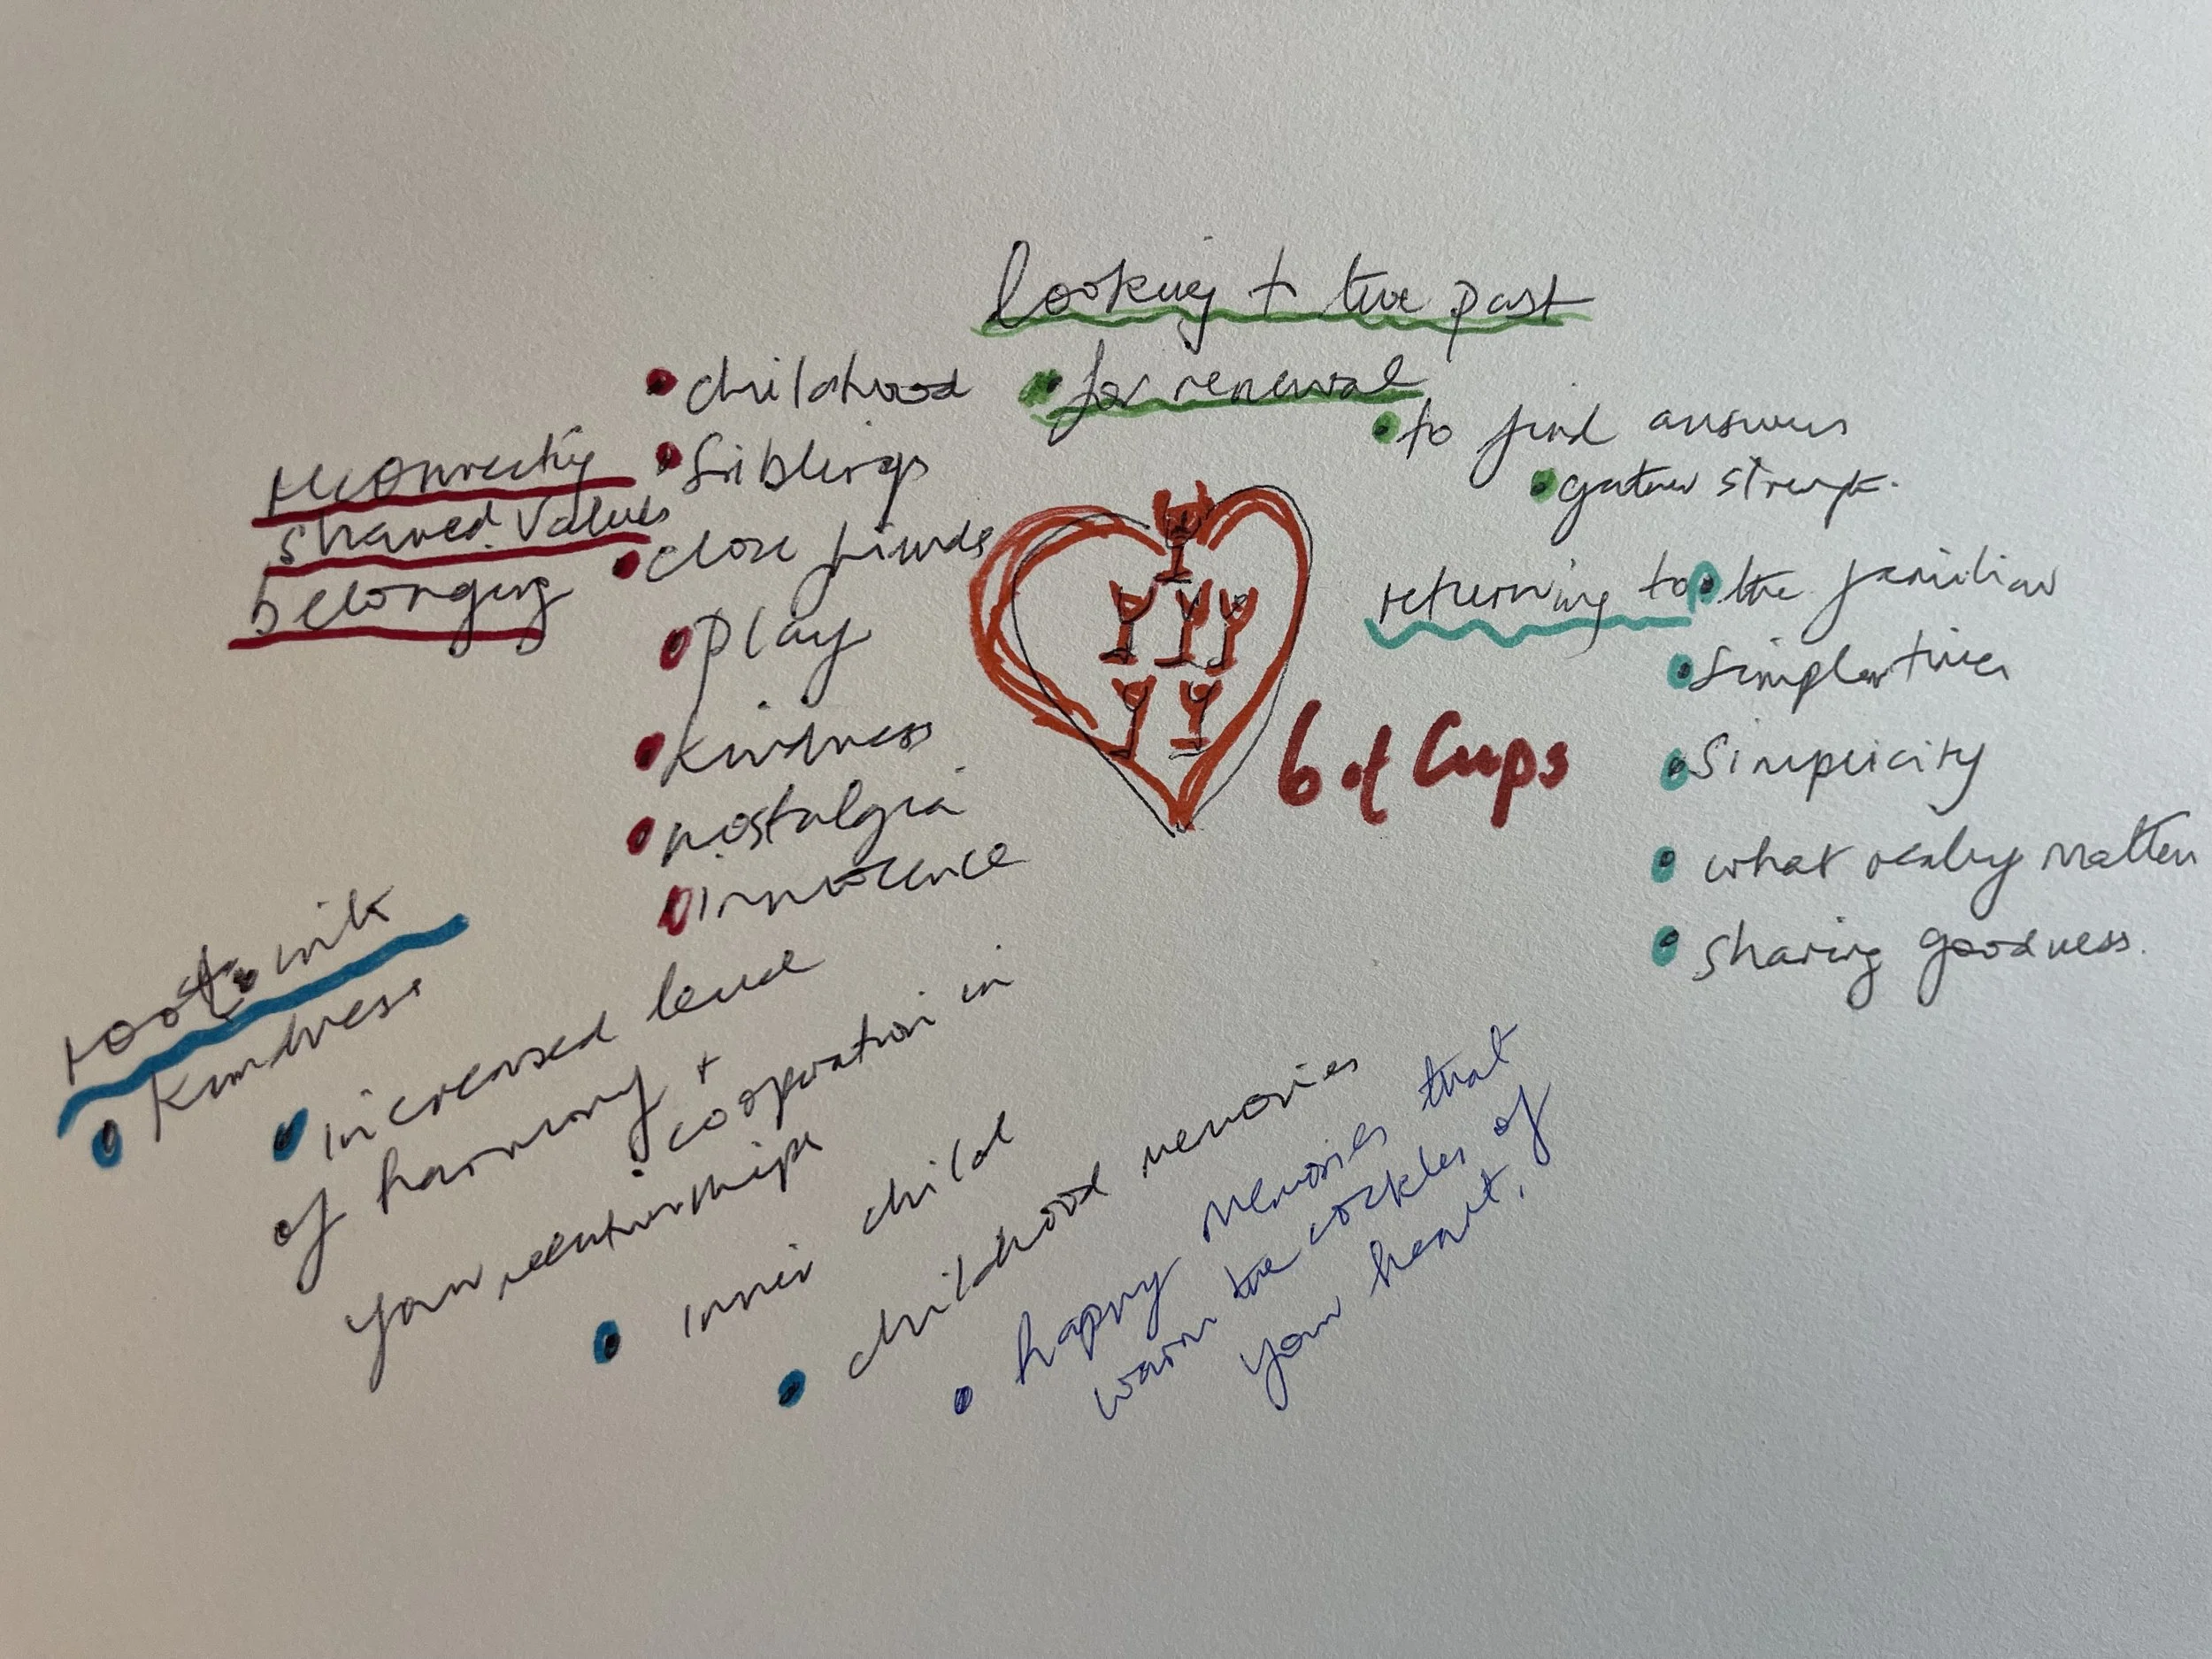 looking to the past
for renewal
to find answers
gather
reconnecting
shared values
belonging
childhood
siblings
close friends
play
kindness
nostalgia
innocence
6 of Cups
returning to the familiar
simpler times
Simplicity
what really matters
sharing goodness.
kindness
increased level
of harmony +
cooperation in
your relationships
inner child
childhood memories
happy memories that
warm the cockles of
your heart.